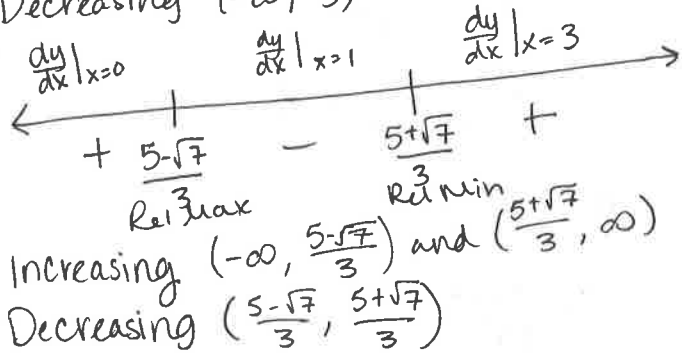 Decreasing (-∞, 3)
dy/dx|x=0 dy/dx|x=1 dy/dx|x=3
+ (5-√7)/3 − (5+√7)/3 +
Rel Max Rel Min
Increasing (-∞, (5-√7)/3) and ((5+√7)/3, ∞)
Decreasing ((5-√7)/3, (5+√7)/3)